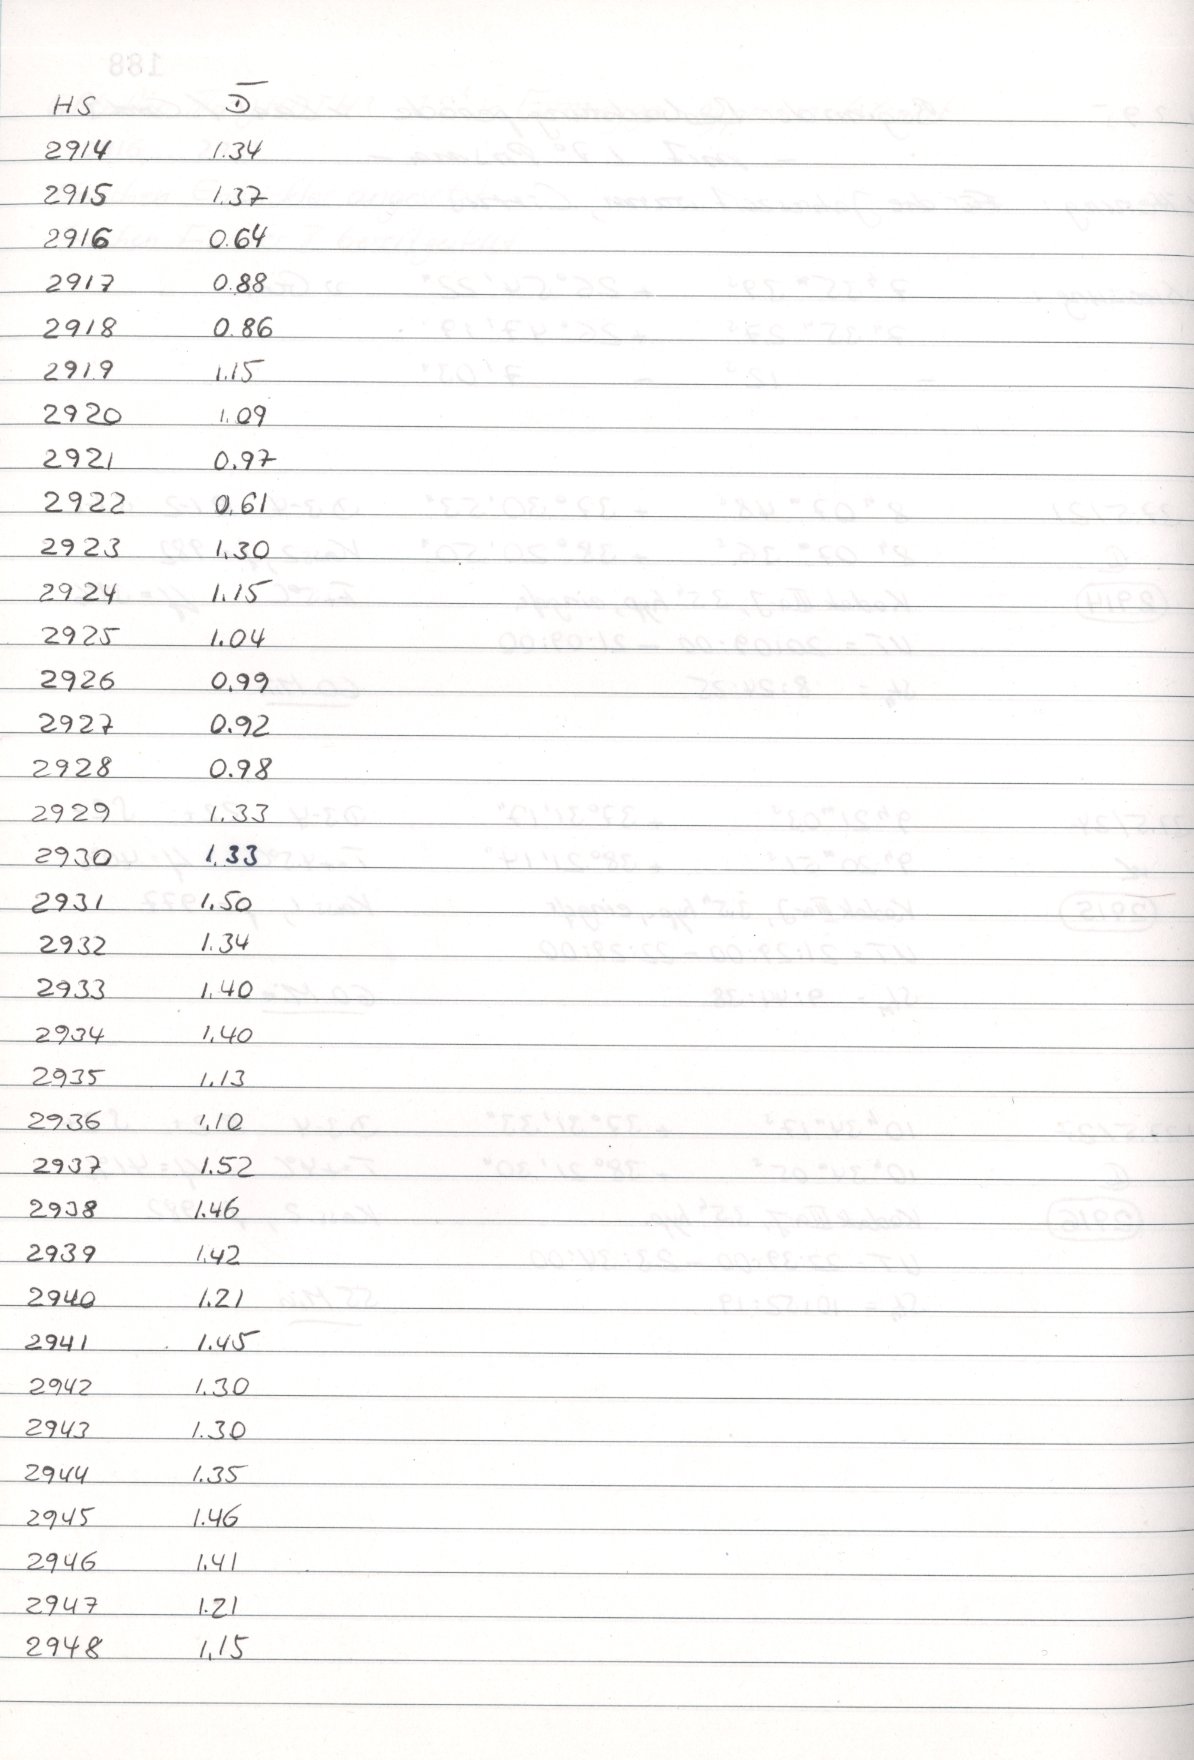 HS D̅
2914 1.34
2915 1.37
2916 0.64
2917 0.88
2918 0.86
2919 1.15
2920 1.09
2921 0.97
2922 0.61
2923 1.30
2924 1.15
2925 1.04
2926 0.99
2927 0.92
2928 0.98
2929 1.33
2930 1.33
2931 1.50
2932 1.34
2933 1.40
2934 1.40
2935 1.13
2936 1.10
2937 1.52
2938 1.46
2939 1.42
2940 1.21
2941 1.45
2942 1.30
2943 1.30
2944 1.35
2945 1.46
2946 1.41
2947 1.21
2948 1.15